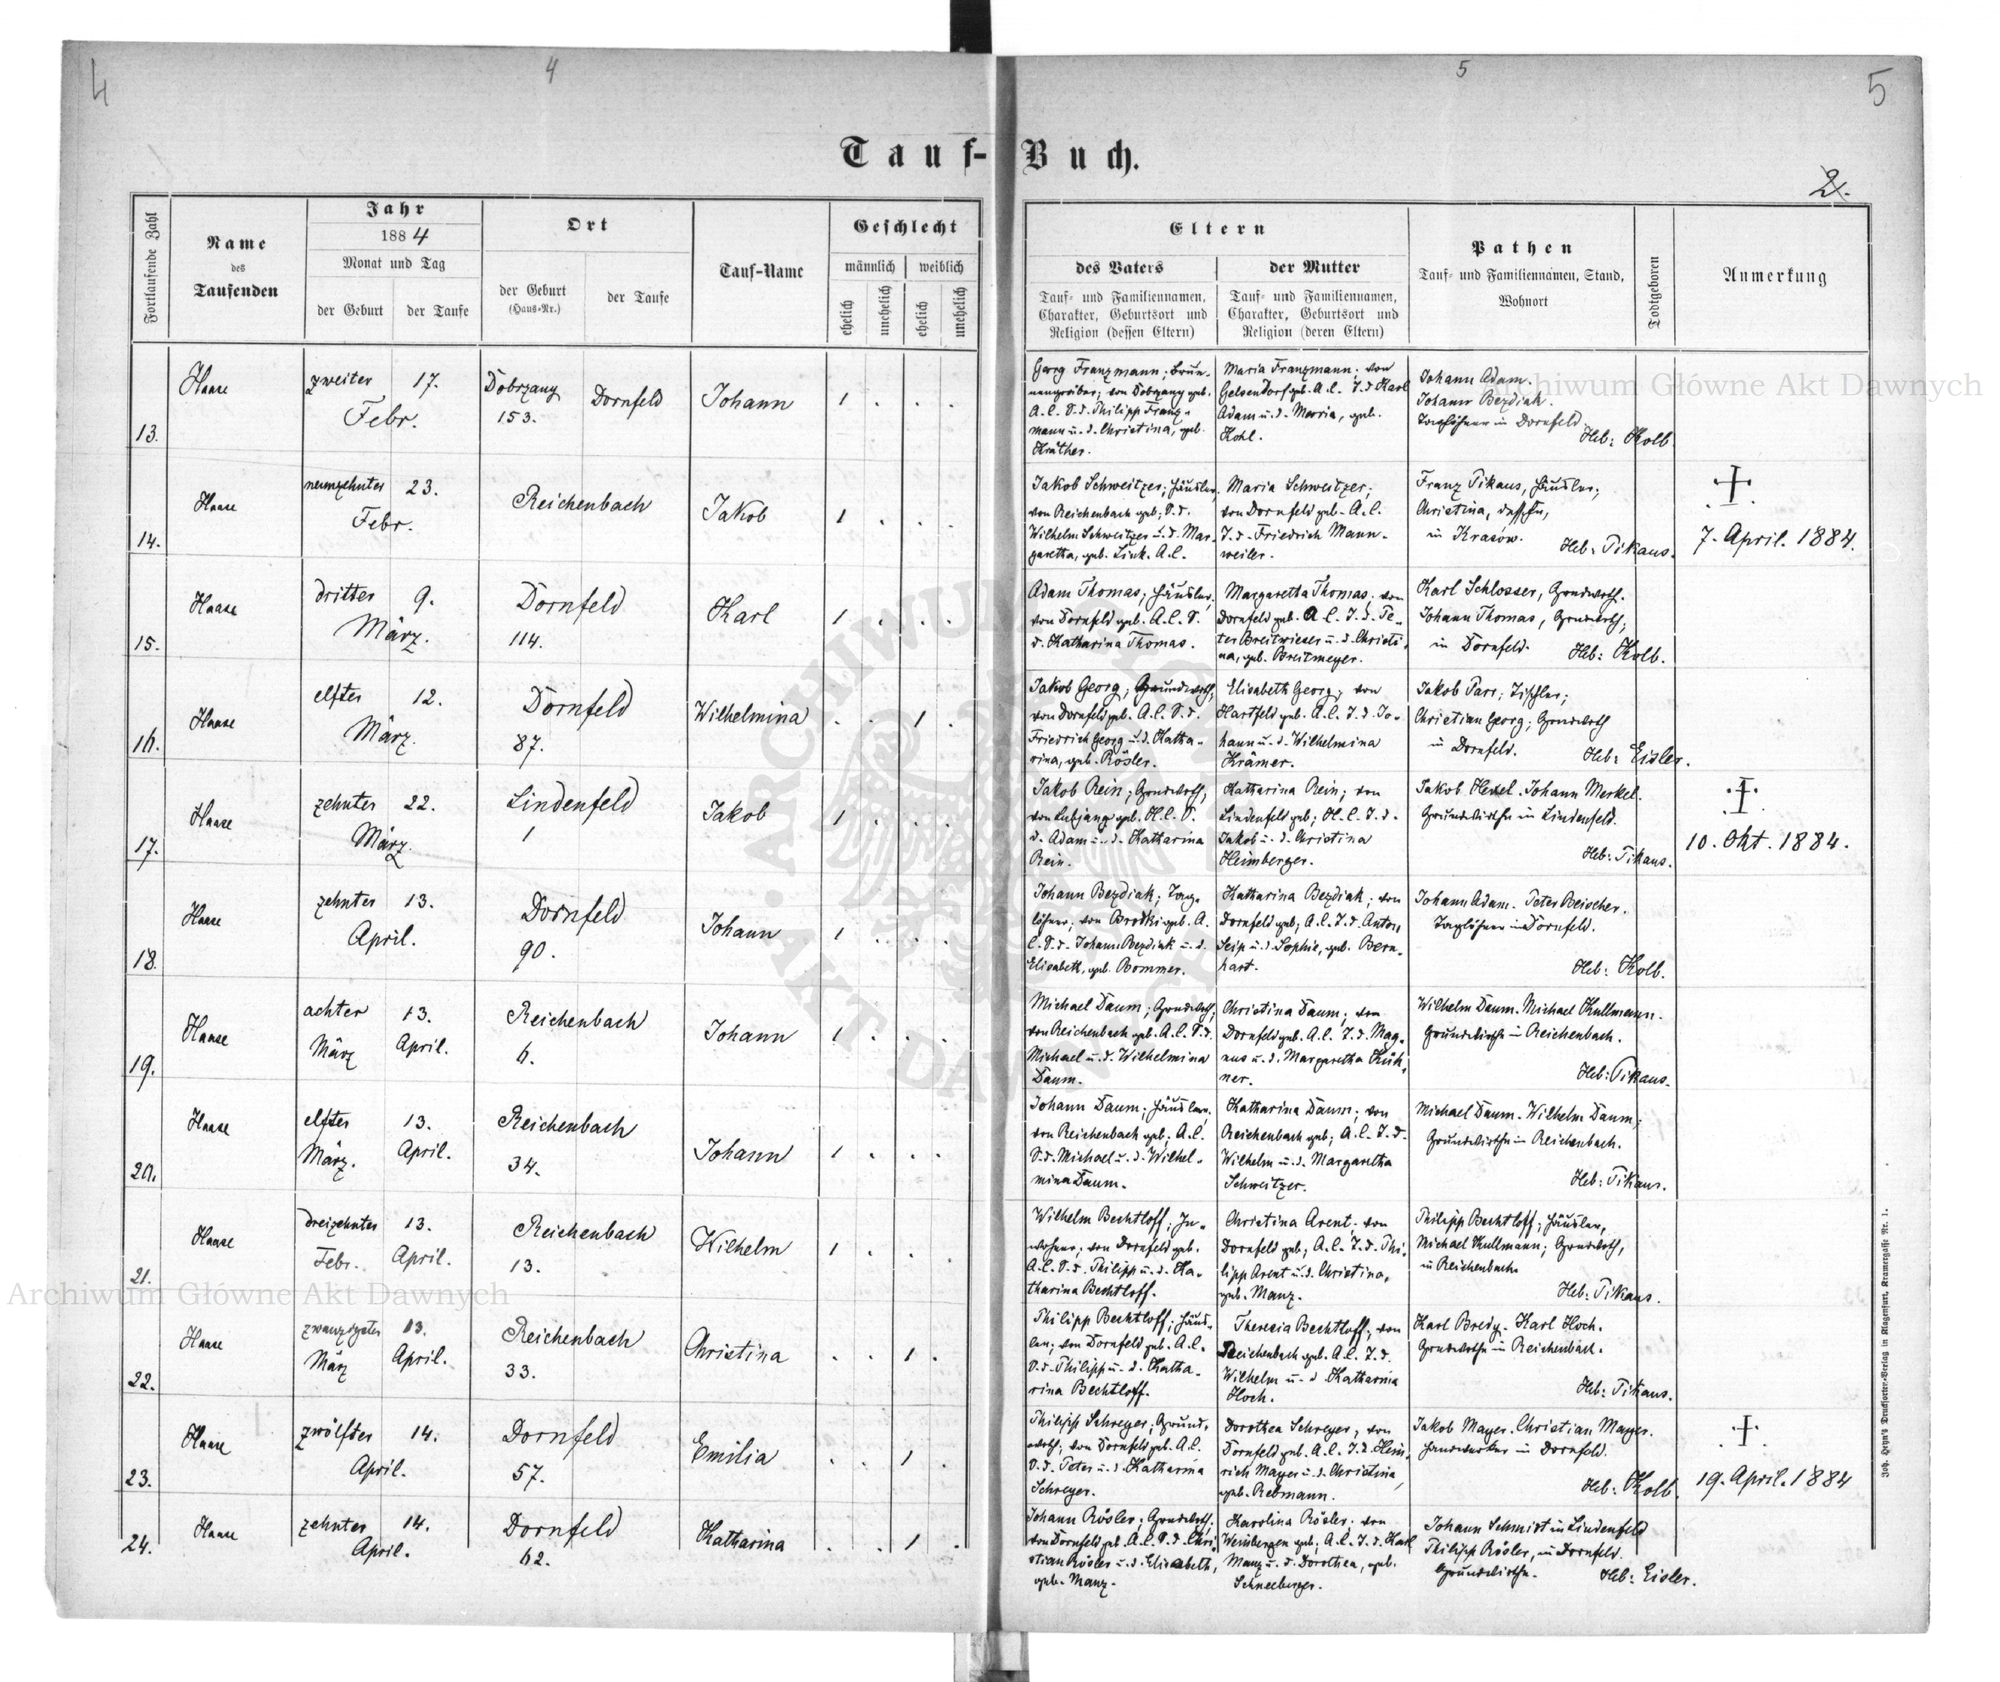 4
4
5
5
Tauf-Buch.
2.
Fortlaufende Zahl
Name
des
Taufenden
Jahr
1884
Monat und Tag
der Geburt
der Taufe
Ort
der Geburt
(Haus-Nr.)
der Taufe
Tauf-Name
Geschlecht
männlich
weiblich
ehelich
unehelich
ehelich
unehelich
Eltern
des Vaters
Tauf- und Familiennamen,
Charakter, Geburtsort und
Religion (dessen Eltern)
der Mutter
Tauf- und Familiennamen,
Charakter, Geburtsort und
Religion (deren Eltern)
Pathen
Tauf- und Familiennamen, Stand,
Wohnort
Todtgeboren
Anmerkung
13.
Haase
zweiter 17.
Febr.
Dobrzany
153.
Dornfeld
Johann
1 . . .
Georg Franzmann; Brun-
von Dobrzany geb.
A.C. S.d. Philipp Franz-
mann u. d. Christina, geb.
Kräther.
Maria Franzmann; von
Gelsendorf geb. A.C. T.d. Karl
Adam u. d. Maria, geb.
Kohl.
Johann Adam.
Johann Bezdiak.
Taglöhner in Dornfeld.
Heb: Kolb
14.
Haase
neunzehnter 23.
Febr.
Reichenbach
Jakob
1 . . .
Jakob Schweitzer; Häusler,
von Reichenbach geb; S.d.
Wilhelm Schweitzer u. d. Mar-
garetha, geb. Link. A.C.
Maria Schweitzer;
von Dornfeld geb. A.C.
T.d. Friedrich Mann-
weiler.
Franz Tikaus, Häusler;
Christina,
in Krasów.
Heb: Tikaus.
7. April. 1884.
15.
Haase
dritter 9.
März.
Dornfeld
114.
Karl
1 . . .
Adam Thomas; Häusler,
von Dornfeld geb. A.C. S.
d. Katharina Thomas.
Margaretha Thomas; von
Dornfeld geb. A.C. T.d. Pe-
ter Breitwieser u. d. Christi-
na, geb. Breitmeyer.
Karl Schlosser, Grundwirth.
Johann Thomas, Grundwirth;
in Dornfeld.
Heb: Kolb.
16.
Haase
elfter 12.
März.
Dornfeld
87.
Wilhelmina
. . 1 .
Jakob Georg; Grundwirth;
von Dornfeld geb. A.C. S.d.
Friedrich Georg u. d. Katha-
rina, geb. Rösler.
Elisabeth Georg; von
Hartfeld geb. A.C. T.d. Jo-
hann u. d. Wilhelmina
Krämer.
Jakob Parr; Tischler;
Christian Georg; Grundwirth
in Dornfeld.
Heb: Eisler.
17.
Haase
zehnter 22.
März.
Lindenfeld
1
Jakob
1 . . .
Jakob Rein; Grundwirth,
von geb. H.C. S.
d. Adam u. d. Katharina
Rein.
Katharina Rein; von
Lindenfeld geb; H.C. T.d.
Jakob u. d. Christina
Heimberger.
Jakob Hexel. Johann Merkel.
Grundwirthe in Lindenfeld.
Heb: Tikaus.
10. Okt. 1884.
18.
Haase
zehnter 13.
April.
Dornfeld
90.
Johann
1 . . .
Johann Bezdiak; Tag-
löhner; von Brodki geb. A.
C. S.d. Johann Bezdiak u. d.
Elisabeth, geb. Bommer.
Katharina Bezdiak; von
Dornfeld geb; A.C. T.d. Anton
Seip u. d. Sophie, geb. Bern-
hart.
Johann Adam. Peter Beischer.
Taglöhner in Dornfeld.
Heb: Kolb.
19.
Haase
achter 13.
März April.
Reichenbach
6.
Johann
1 . . .
Michael Daum; Grundwirth;
von Reichenbach geb. A.C. S.d.
Michael u. d. Wilhelmina
Daum.
Christina Daum; von
Dornfeld geb. A.C. T.d. Mag-
nus u. d. Margaretha Küh-
ner.
Wilhelm Daum. Michael Kullmann.
Grundwirthe in Reichenbach.
Heb: Tikaus.
20.
Haase
elfter 13.
März. April.
Reichenbach
34.
Johann
1 . . .
Johann Daum; Häusler;
von Reichenbach geb; A.C.
S.d. Michael u. d. Wilhel-
mina Daum.
Katharina Daum; von
Reichenbach geb; A.C. T.d.
Wilhelm u. d. Margaretha
Schweitzer.
Michael Daum. Wilhelm Daum;
Grundwirthe in Reichenbach.
Heb: Tikaus.
21.
Haase
dreizehnter 13.
Febr. April.
Reichenbach
13.
Wilhelm
1 . . .
Wilhelm Bechtloff; In-
wohner; von Dornfeld geb.
A.C. S.d. Philipp u. d. Ka-
tharina Bechtloff.
Christina Arent; von
Dornfeld geb; A.C. T.d. Phi-
lipp Arent u. d. Christina,
geb. Manz.
Philipp Bechtloff; Häusler,
Michael Kullmann; Grundwirth,
in Reichenbach.
Heb: Tikaus.
22.
Haase
zwanzigster 13.
März April.
Reichenbach
33.
Christina
. . 1 .
Philipp Bechtloff; Häus-
ler; von Dornfeld geb. A.C.
S.d. Philipp u. d. Katha-
rina Bechtloff.
Theresia Bechtloff; von
Reichenbach geb. A.C. T.d.
Wilhelm u. d. Katharina
Hoch.
Karl Breig. Karl Hoch.
Grundwirthe in Reichenbach.
Heb: Tikaus.
23.
Haase
zwölfter 14.
April.
Dornfeld
57.
Emilia
. . 1 .
Philipp Schreyer; Grund-
wirth; von Dornfeld geb. A.C.
S.d. Peter u. d. Katharina
Schreyer.
Dorothea Schreyer; von
Dornfeld geb. A.C. T.d. Hein-
rich Mayer u. d. Christina,
geb. Rebmann.
Jakob Mayer. Christian Mayer.
Handwerker in Dornfeld.
Heb: Kolb.
19. April. 1884
24.
Haase
zehnter 14.
April.
Dornfeld
62.
Katharina
. . 1 .
Johann Rösler; Grundwirth;
von Dornfeld geb. A.C. S.d. Chri-
stian Rösler u. d. Elisabeth,
geb. Manz.
Karolina Rösler; von
Weinbergen geb; A.C. T.d. Karl
Manz u. d. Dorothea, geb.
Schneeberger.
Johann Schmidt in Lindenfeld
Philipp Rösler, in Dornfeld.
Grundwirthe.
Heb: Eisler.
Joh. Heyn's Drucksorten-Verlag in Klagenfurt, Kramergasse Nr. 1.
Archiwum Główne Akt Dawnych
Archiwum Główne Akt Dawnych